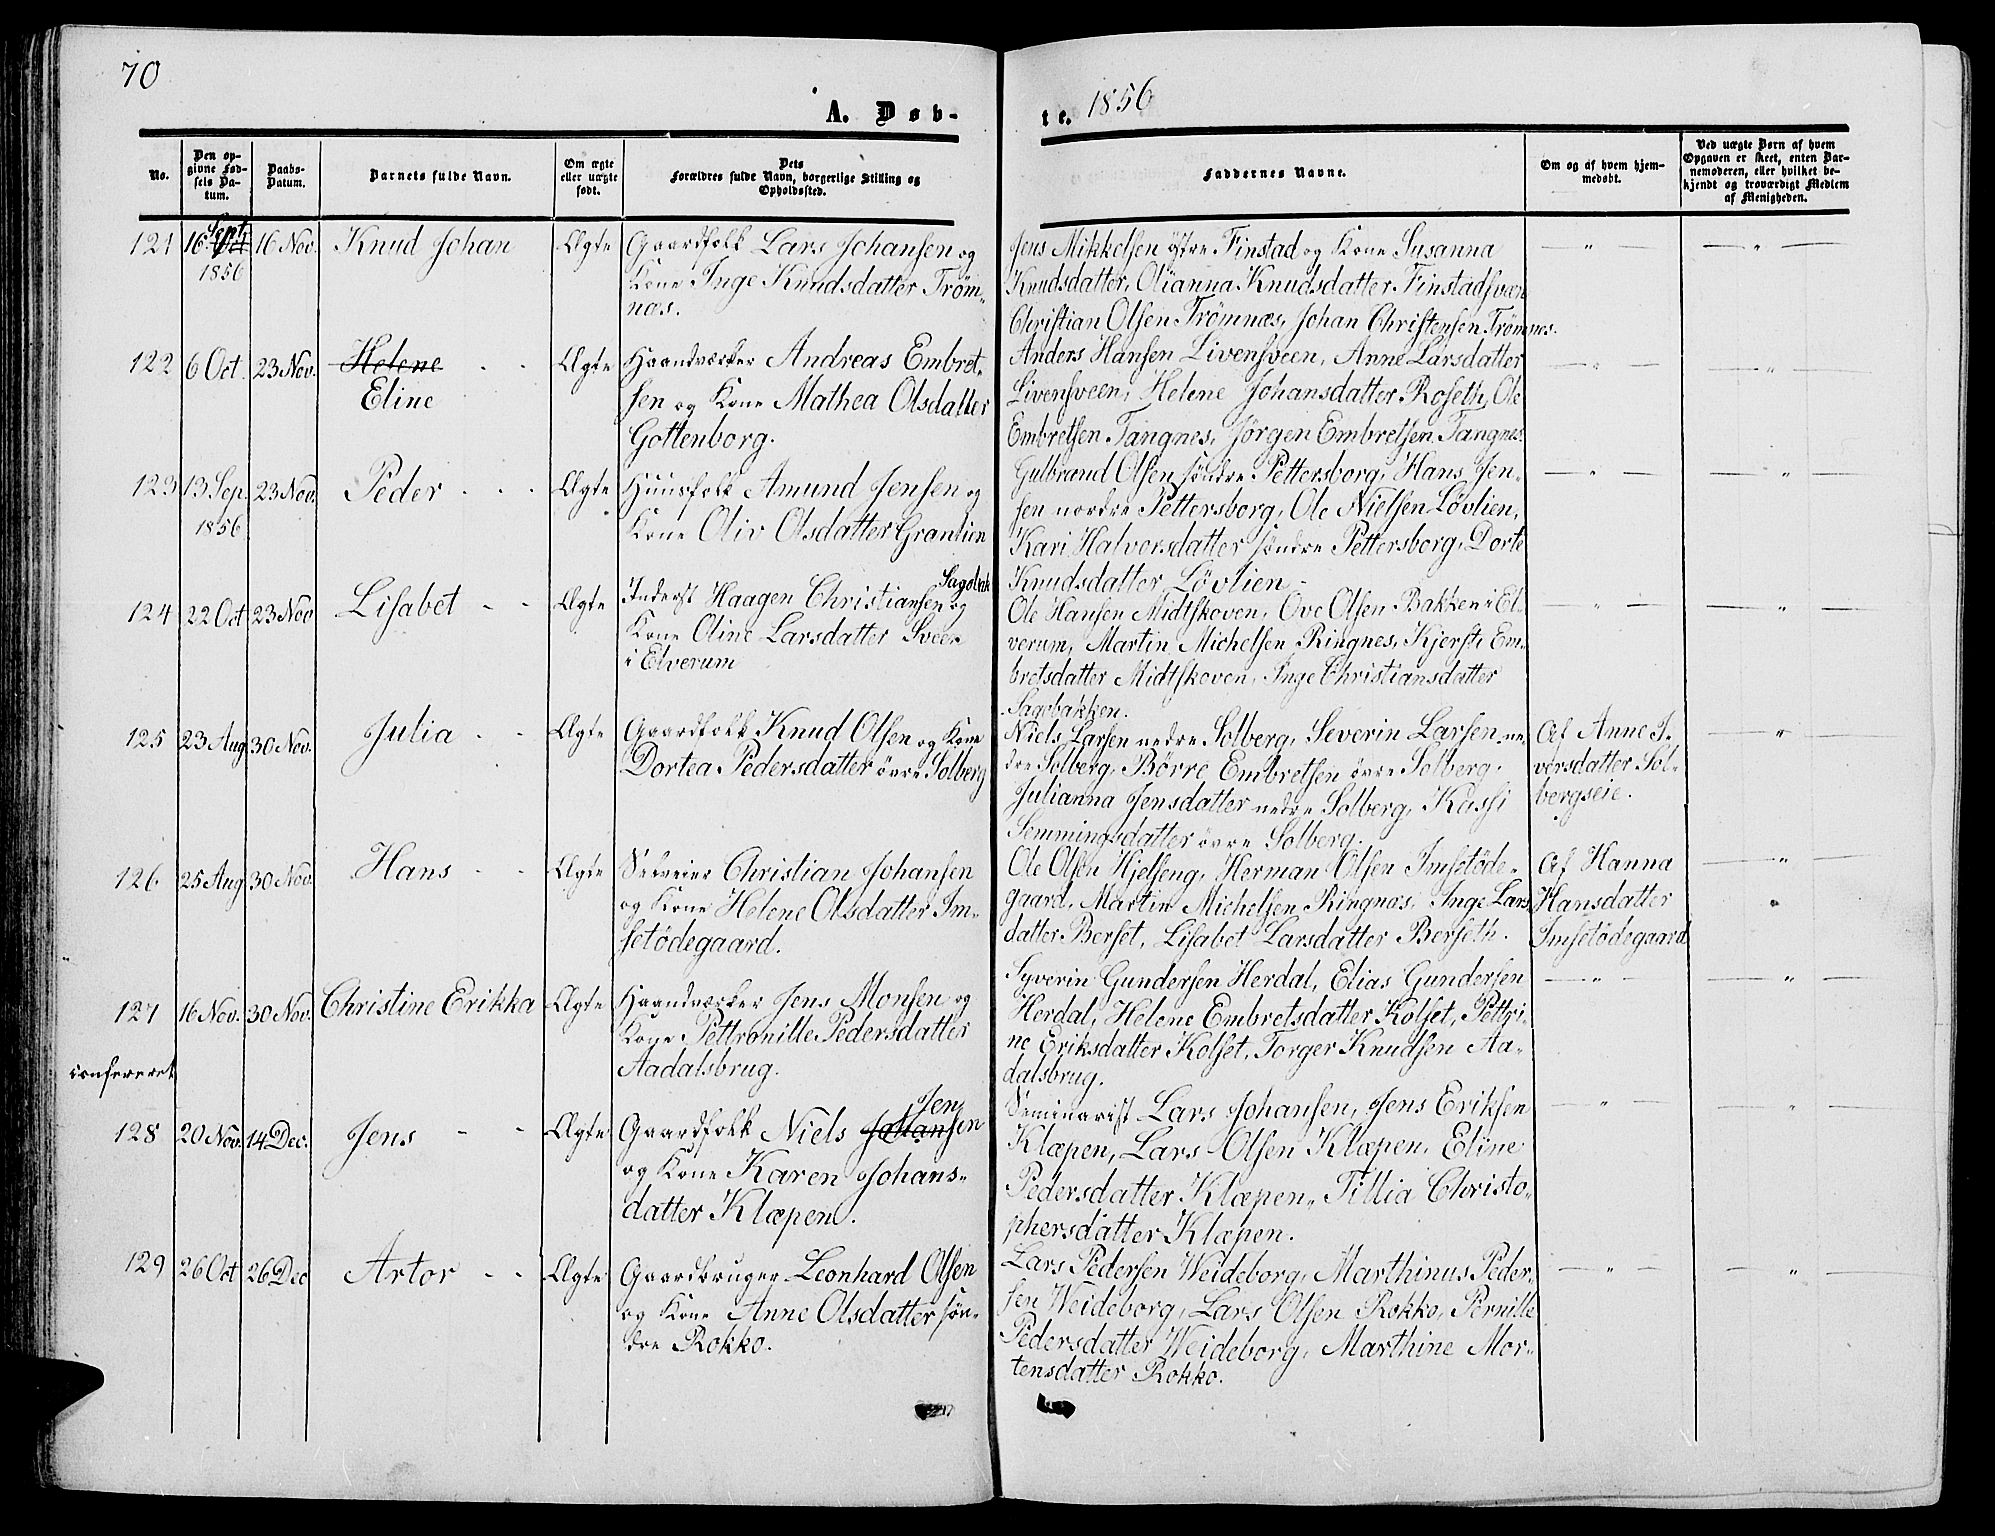 70
A. Døb-
te. 1856
No.
Den op-
givne Fød-
sels Da-
tum.
Daabs-
Datum.
Barnets fulde Navn.
Om ægte
eller uægte
født.
Dets
Forældres fulde Navn, borgerlige Stilling og
Opholdssted.
Faddernes Navne.
Om og af hvem hjem-
medøbt.
Ved uægte Børn af hvem
Opgaven er skeet, enten Bar-
nemoderen, eller hvilket be-
kjendt og troværdigt Medlem
af Menigheden.
121
16 Sept. Oct
1856
16 Nov.
Knud Johan
Ægte
Gaardfolk Lars Johansen og
Kone Inge Knudsdatter Tröm-
næs.
Jens Mikkelsen östre Finstad og Kone Susanna
Knudsdatter, Olianna Knudsdatter Finstadsveen
Christian Olsen Trömnæs, Johan Christensen Trömnæs.
122
6 Oct.
23 Nov.
Helene
Eline
Ægte
Haandværker Andreas Embret-
sen og Kone Mathea Olsdatter
Gottenborg.
Anders Hansen Livensveen, Anne Larsdatter
Livensveen, Helene Johansdatter Roseth, Ole
Embretsen Tangnes, Jörgen Embretsen Tangnes.
123
13 Sep.
1856
23 Nov.
Peder
Ægte
Huusfolk Amund Jensen og
Kone Oliv Olsdatter Grantien
Gulbrand Olsen söndre Pettersborg, Hans Jen-
sen nordre Pettersborg, Ole Nielsen Løvlien,
Kari Halvorsdatter söndre Pettersborg, Dorte
Knudsdatter Løvlien -
124
22 Oct
23 Nov
Lisabet
Ægte
Inderst Haagen Christiansen Sagebak og
Kone Oline Larsdatter Sveen
i Elverum
Ole Hansen Midtskoven, Ove Olsen Bakken i El-
verum, Martin Michelsen Ringnes, Kjersti Em-
bretsdatter Midtskoven, Inge Christiansdatter
Sagebakken.
125
23 Aug
30 Nov.
Julia
Ægte
Gaardfolk Knud Olsen og Kone
Dortea Pedersdatter övre Solberg
Niels Larsen nedre Solberg, Severin Larsen ne-
dre Solberg, Börre Embretsen övre Solberg.
Julianna Jensdatter nedre Solberg, Kassi
Semmingsdatter övre Solberg.
Af Anne I-
versdatter Sol-
bergseie.
126
25 Aug
30 Nov.
Hans
Ægte
Selveier Christian Johansen
og Kone Helene Olsdatter Im-
setödegaard.
Ole Olsen Hjelseng, Herman Olsen Imsetöde-
gaard, Martin Michelsen Ringnæs, Inge Lars
datter Berset, Lisabet Larsdatter Berseth.
Af Hanna
Hansdatter
Imsetödegaard
127
confereret
16 Nov.
30 Nov.
Christine Erikka
Ægte
Haandværker Jens Monsen og
Kone Pettronille Pedersdatter
Aadalsbrug.
Syverin Gundersen Herdal, Elias Gundersen
Herdal, Helene Embretsdatter Kolset, Pettri-
ne Eriksdatter Kolset, Torger Knudsen Aa-
dalsbrug.
128
20 Nov.
14 Dec.
Jens
Ægte
Gaardfolk Niels Johansen Jen
og Kone Karen Johans-
datter Klæpen.
Seminarist Lars Johansen, Jens Eriksen
Klæpen, Lars Olsen Klæpen, Eline
Pedersdatter Klæpen, Tillia Christo-
phersdatter Klæpen.
129
26 Oct
26 Dec
Artor
Ægte
Gaardbruger Leonhard Olsen
og Kone Anne Olsdatter sön-
dre Rokko.
Lars Pedersen Weideborg, Marthinus Peder-
sen Weideborg, Lars Olsen Rokko, Pernille
Pedersdatter Weideborg, Marthine Mor-
tensdatter Rokko.